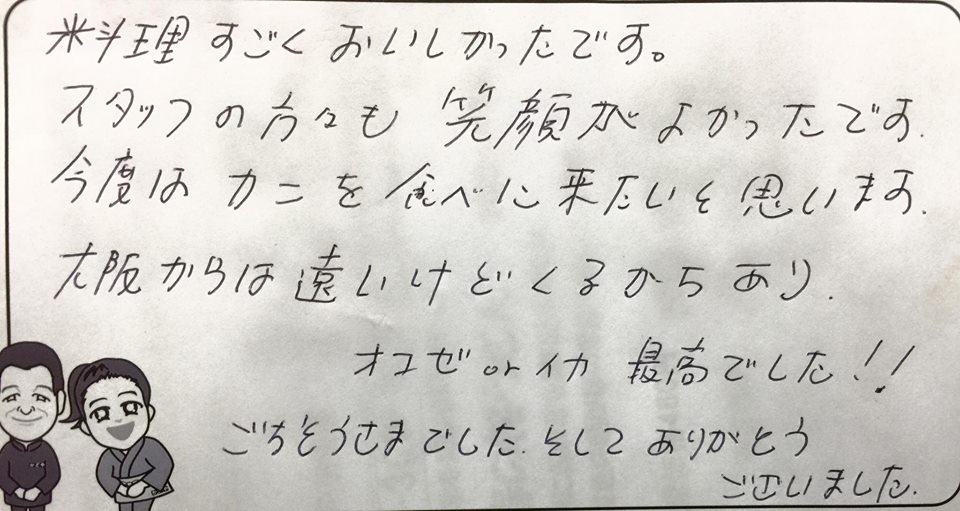 料理 すごく おいしかったです。
スタッフの方々も 笑顔が よかったです.
今度は カニを 食べに来たいと思います.
大阪からは 遠いけどくるかちあり.
オコゼ or イカ 最高でした!!
ごちそうさまでした. そして ありがとう
ございました.